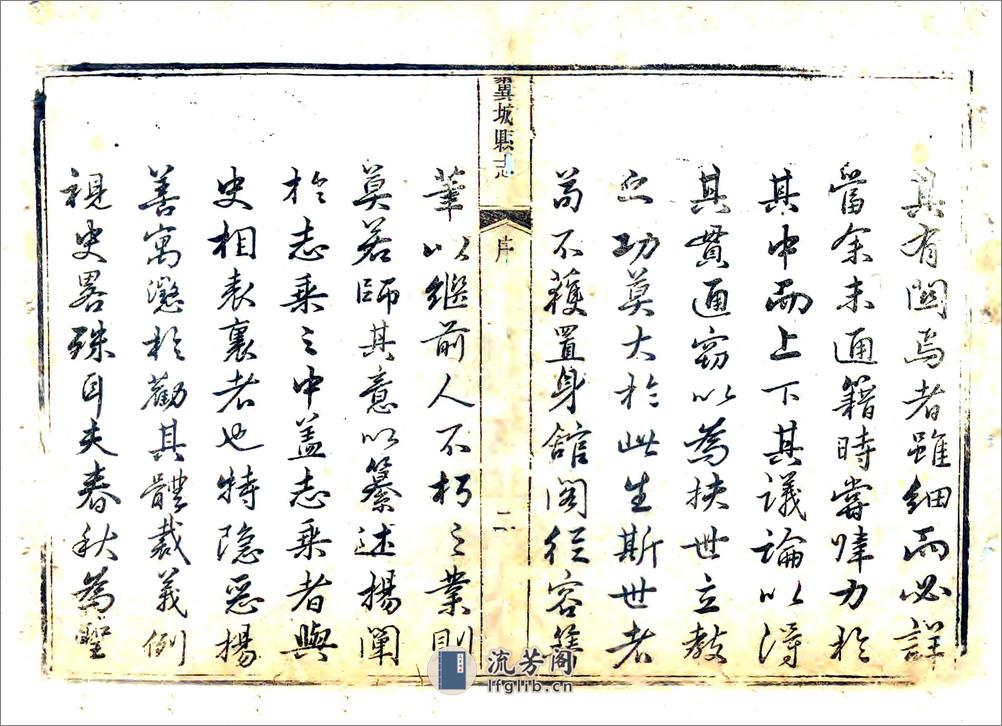 其有関焉者雖細而必詳
當余未通籍時嘗肆力於
其中而上下其議論以得
其貫通竊以為扶世立教
之功莫大於此生斯世者
苟不獲置身館閣從容簪
筆以繼前人不朽之業則
莫若師其意以纂述揚闡
於志乘之中蓋志乘者與
史相表裏者也特隐惡揚
善寓懲於勸其體裁義例
視史畧殊耳夫春秋為聖
翼城縣志
序
二
流芳阁
lfglib.cn